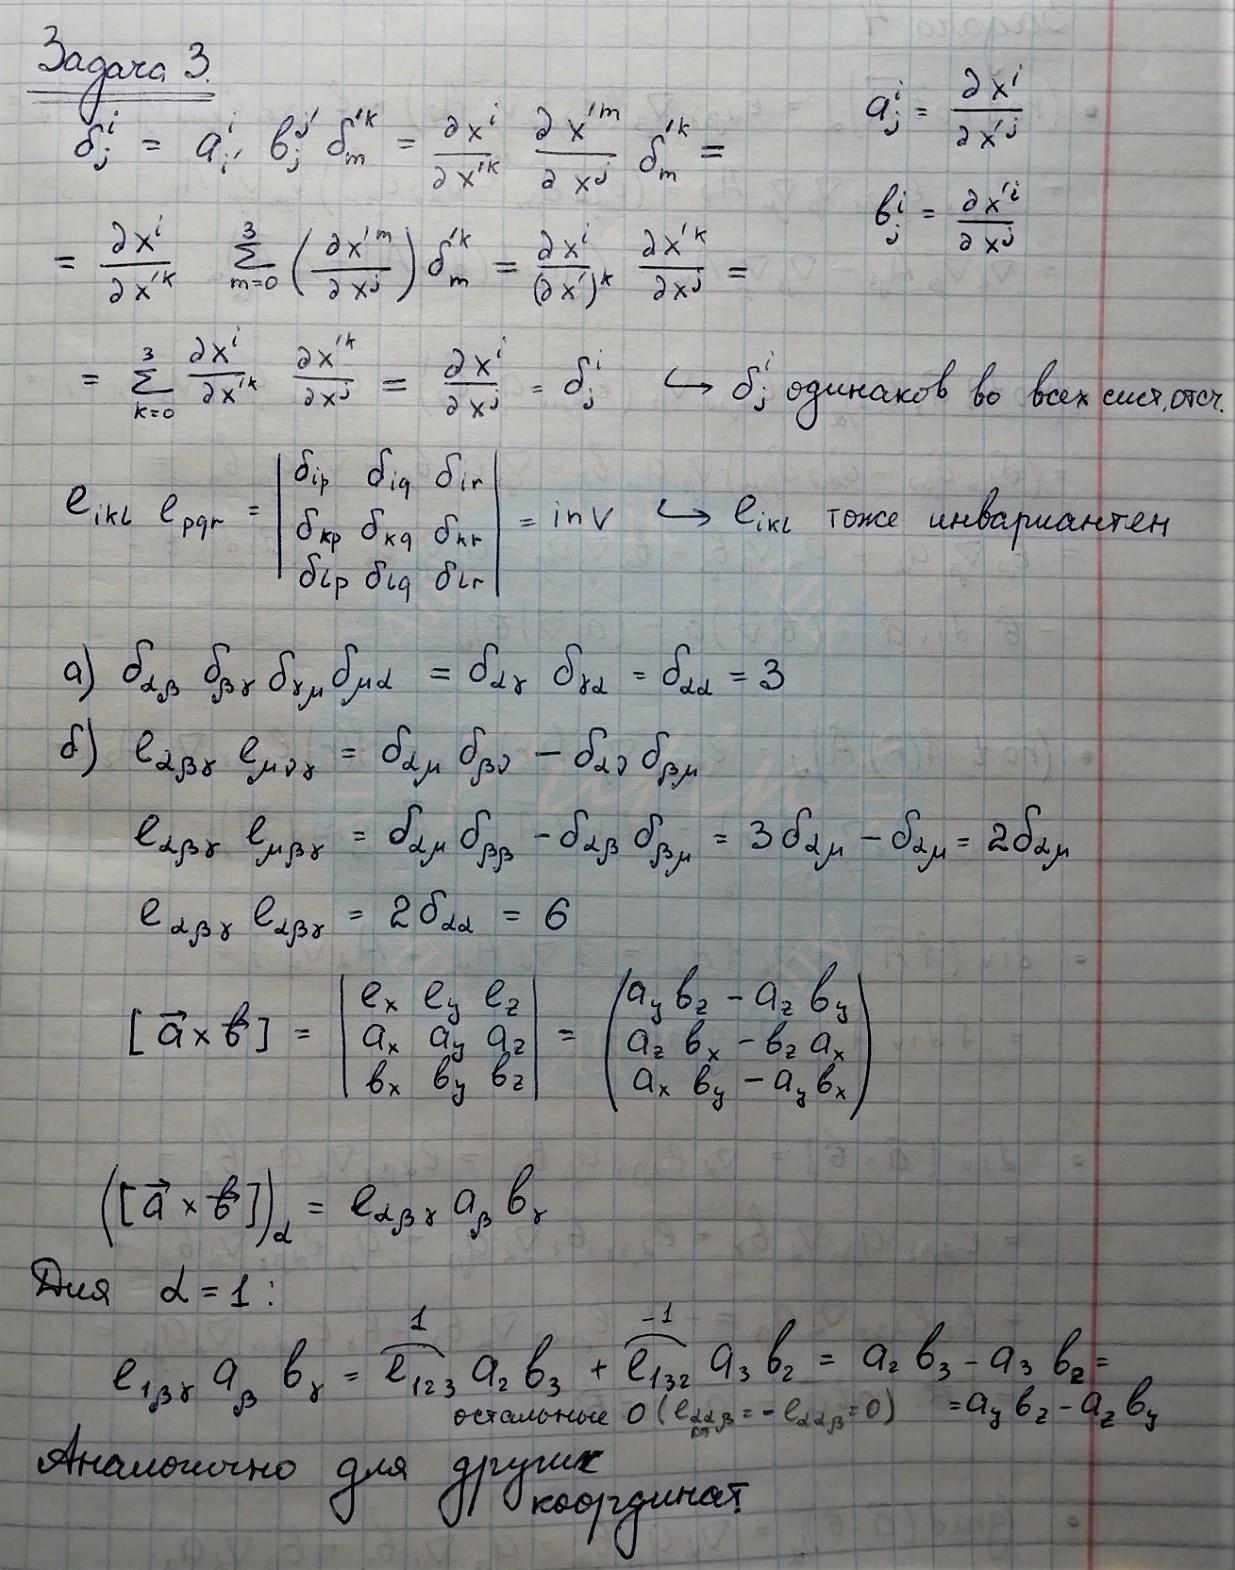 Задача 3.
δ^i_j = a^i_{i'} b^{j'}_j δ'^k_m = ∂x^i/∂x'^k ∂x'^m/∂x^j δ'^k_m =
a^i_j = ∂x^i/∂x'^j
b^i_j = ∂x'^i/∂x^j
= ∂x^i/∂x'^k Σ_{m=0}^{3} (∂x'^m/∂x^j) δ'^k_m = ∂x^i/(∂x')^k ∂x'^k/∂x^j =
= Σ_{k=0}^{3} ∂x^i/∂x'^k ∂x'^k/∂x^j = ∂x^i/∂x^j = δ^i_j ↪ δ^i_j одинаков во всех сист. отсч.
e_{ikl} e_{pqr} = | δ_{ip} δ_{iq} δ_{ir} |
| δ_{kp} δ_{kq} δ_{kr} | = inv ↪ e_{ikl} тоже инвариантен
| δ_{lp} δ_{lq} δ_{lr} |
а) δ_{αβ} δ_{βγ} δ_{γμ} δ_{μα} = δ_{αγ} δ_{γα} = δ_{αα} = 3
б) e_{αβγ} e_{μνγ} = δ_{αμ} δ_{βν} − δ_{αν} δ_{βμ}
e_{αβγ} e_{μβγ} = δ_{αμ} δ_{ββ} − δ_{αβ} δ_{βμ} = 3δ_{αμ} − δ_{αμ} = 2δ_{αμ}
e_{αβγ} e_{αβγ} = 2δ_{αα} = 6
[a⃗ × b⃗] = | e_x e_y e_z | = ( a_y b_z − a_z b_y )
| a_x a_y a_z | ( a_z b_x − b_z a_x )
| b_x b_y b_z | ( a_x b_y − a_y b_x )
([a⃗ × b⃗])_α = e_{αβγ} a_β b_γ
Для α = 1:
1 −1
e_{1βγ} a_β b_γ = e_{123} a_2 b_3 + e_{132} a_3 b_2 = a_2 b_3 − a_3 b_2 =
остальные 0 (e_{ααβ} = −e_{ααβ} = 0) = a_y b_z − a_z b_y
Аналогично для других
координат